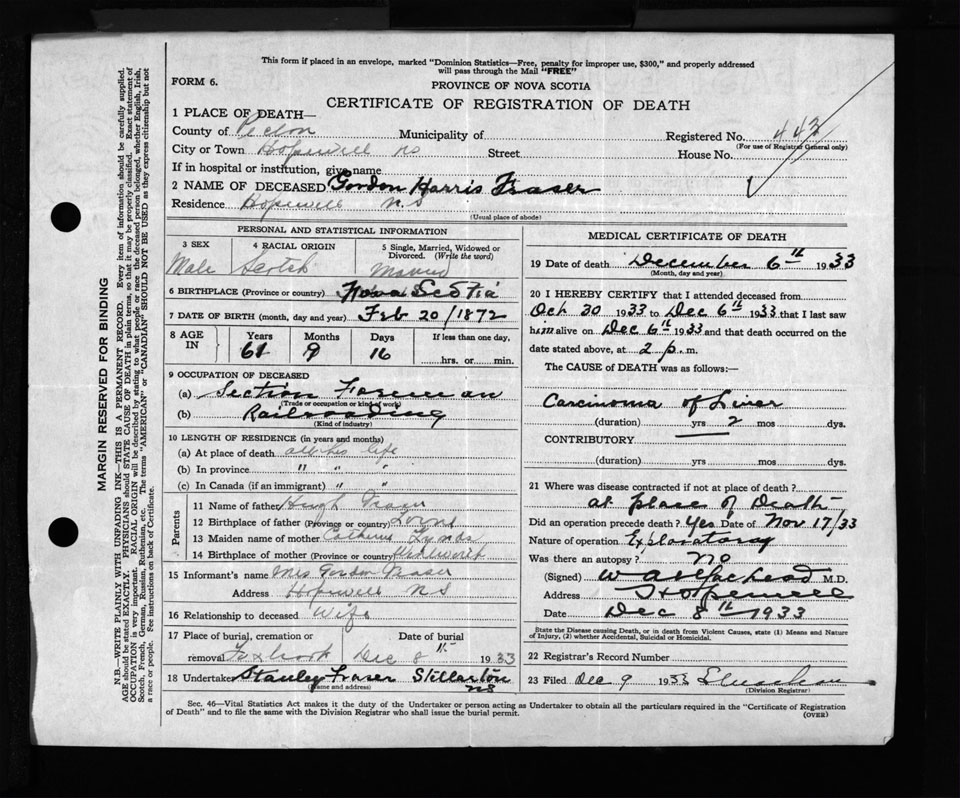 This form if placed in an envelope, marked "Dominion Statistics—Free, penalty for improper use, $300," and properly addressed
will pass through the Mail "FREE"
FORM 6.
PROVINCE OF NOVA SCOTIA
CERTIFICATE OF REGISTRATION OF DEATH
1 PLACE OF DEATH—
County of Pictou Municipality of Registered No. 442
(For use of Registrar General only)
City or Town Hopewell NS Street House No.
If in hospital or institution, give name
2 NAME OF DECEASED Gordon Harris Fraser
Residence Hopewell N.S
(Usual place of abode)
PERSONAL AND STATISTICAL INFORMATION
3 SEX 4 RACIAL ORIGIN 5 Single, Married, Widowed or Divorced. (Write the word)
Male Scotch Married
6 BIRTHPLACE (Province or country) Nova Scotia
7 DATE OF BIRTH (month, day and year) Feb 20/1872
8 AGE IN Years Months Days If less than one day,
61 9 16 hrs. or min.
9 OCCUPATION OF DECEASED
(a) Section Foreman
(Trade or occupation or kind of work)
(b) Railroading
(Kind of industry)
10 LENGTH OF RESIDENCE (in years and months)
(a) At place of death all his life
(b) In province " " "
(c) In Canada (if an immigrant) " " "
Parents
11 Name of father Hugh Fraser
12 Birthplace of father (Province or country) Lorne
13 Maiden name of mother Catherine
14 Birthplace of mother (Province or country)
15 Informant's name Mrs Gordon Fraser
Address Hopewell NS
16 Relationship to deceased Wife
17 Place of burial, cremation or Date of burial
removal Foxbrook Dec 8th 1933
18 Undertaker Stanley Fraser Stellarton
(name and address) NS
MEDICAL CERTIFICATE OF DEATH
19 Date of death December 6th 1933
(Month, day and year)
20 I HEREBY CERTIFY that I attended deceased from
Oct 20 1933 to Dec 6th 1933 that I last saw
him alive on Dec 6th 1933 and that death occurred on the
date stated above, at 2 p.m.
The CAUSE of DEATH was as follows:—
Carcinoma of Liver
(duration) yrs 2 mos dys.
CONTRIBUTORY
(duration) yrs mos dys.
21 Where was disease contracted if not at place of death?
at place of Death
Did an operation precede death? Yes Date of Nov 17/33
Nature of operation Exploratory
Was there an autopsy? No
(Signed) M.D.
Address Hopewell
Date Dec 8th 1933
State the Disease causing Death, or in death from Violent Causes, state (1) Means and Nature
of Injury, (2) whether Accidental, Suicidal or Homicidal.
22 Registrar's Record Number
23 Filed Dec 9 1933
(Division Registrar)
Sec. 46—Vital Statistics Act makes it the duty of the Undertaker or person acting as Undertaker to obtain all the particulars required in the "Certificate of Registration
of Death" and to file the same with the Division Registrar who shall issue the burial permit. (OVER)
MARGIN RESERVED FOR BINDING
N.B.—WRITE PLAINLY WITH UNFADING INK—THIS IS A PERMANENT RECORD. Every item of information should be carefully supplied.
AGE should be stated EXACTLY. PHYSICIANS should STATE CAUSE OF DEATH in plain terms, so that it may be properly classified. Exact statement of
OCCUPATION is very important. RACIAL ORIGIN will be described by stating to what people or race the deceased person belonged, whether English, Irish,
Scotch, French, German, Russian, Ruthenian, etc. The terms "AMERICAN" or "CANADIAN" SHOULD NOT BE USED as they express citizenship but not
a race or people. See instructions on back of Certificate.